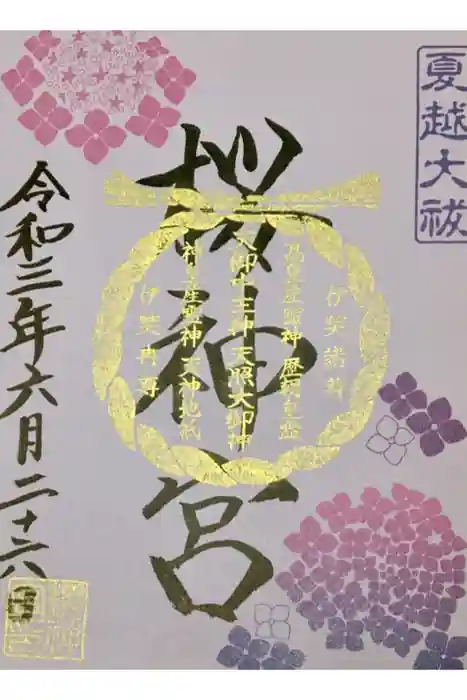 夏越大祓
桜神宮
伊弉諾尊
高皇産霊神 歴代皇霊
天御中主神 天照大御神
神皇産霊神 天神地祇
伊弉冉尊
令和三年六月二十六日